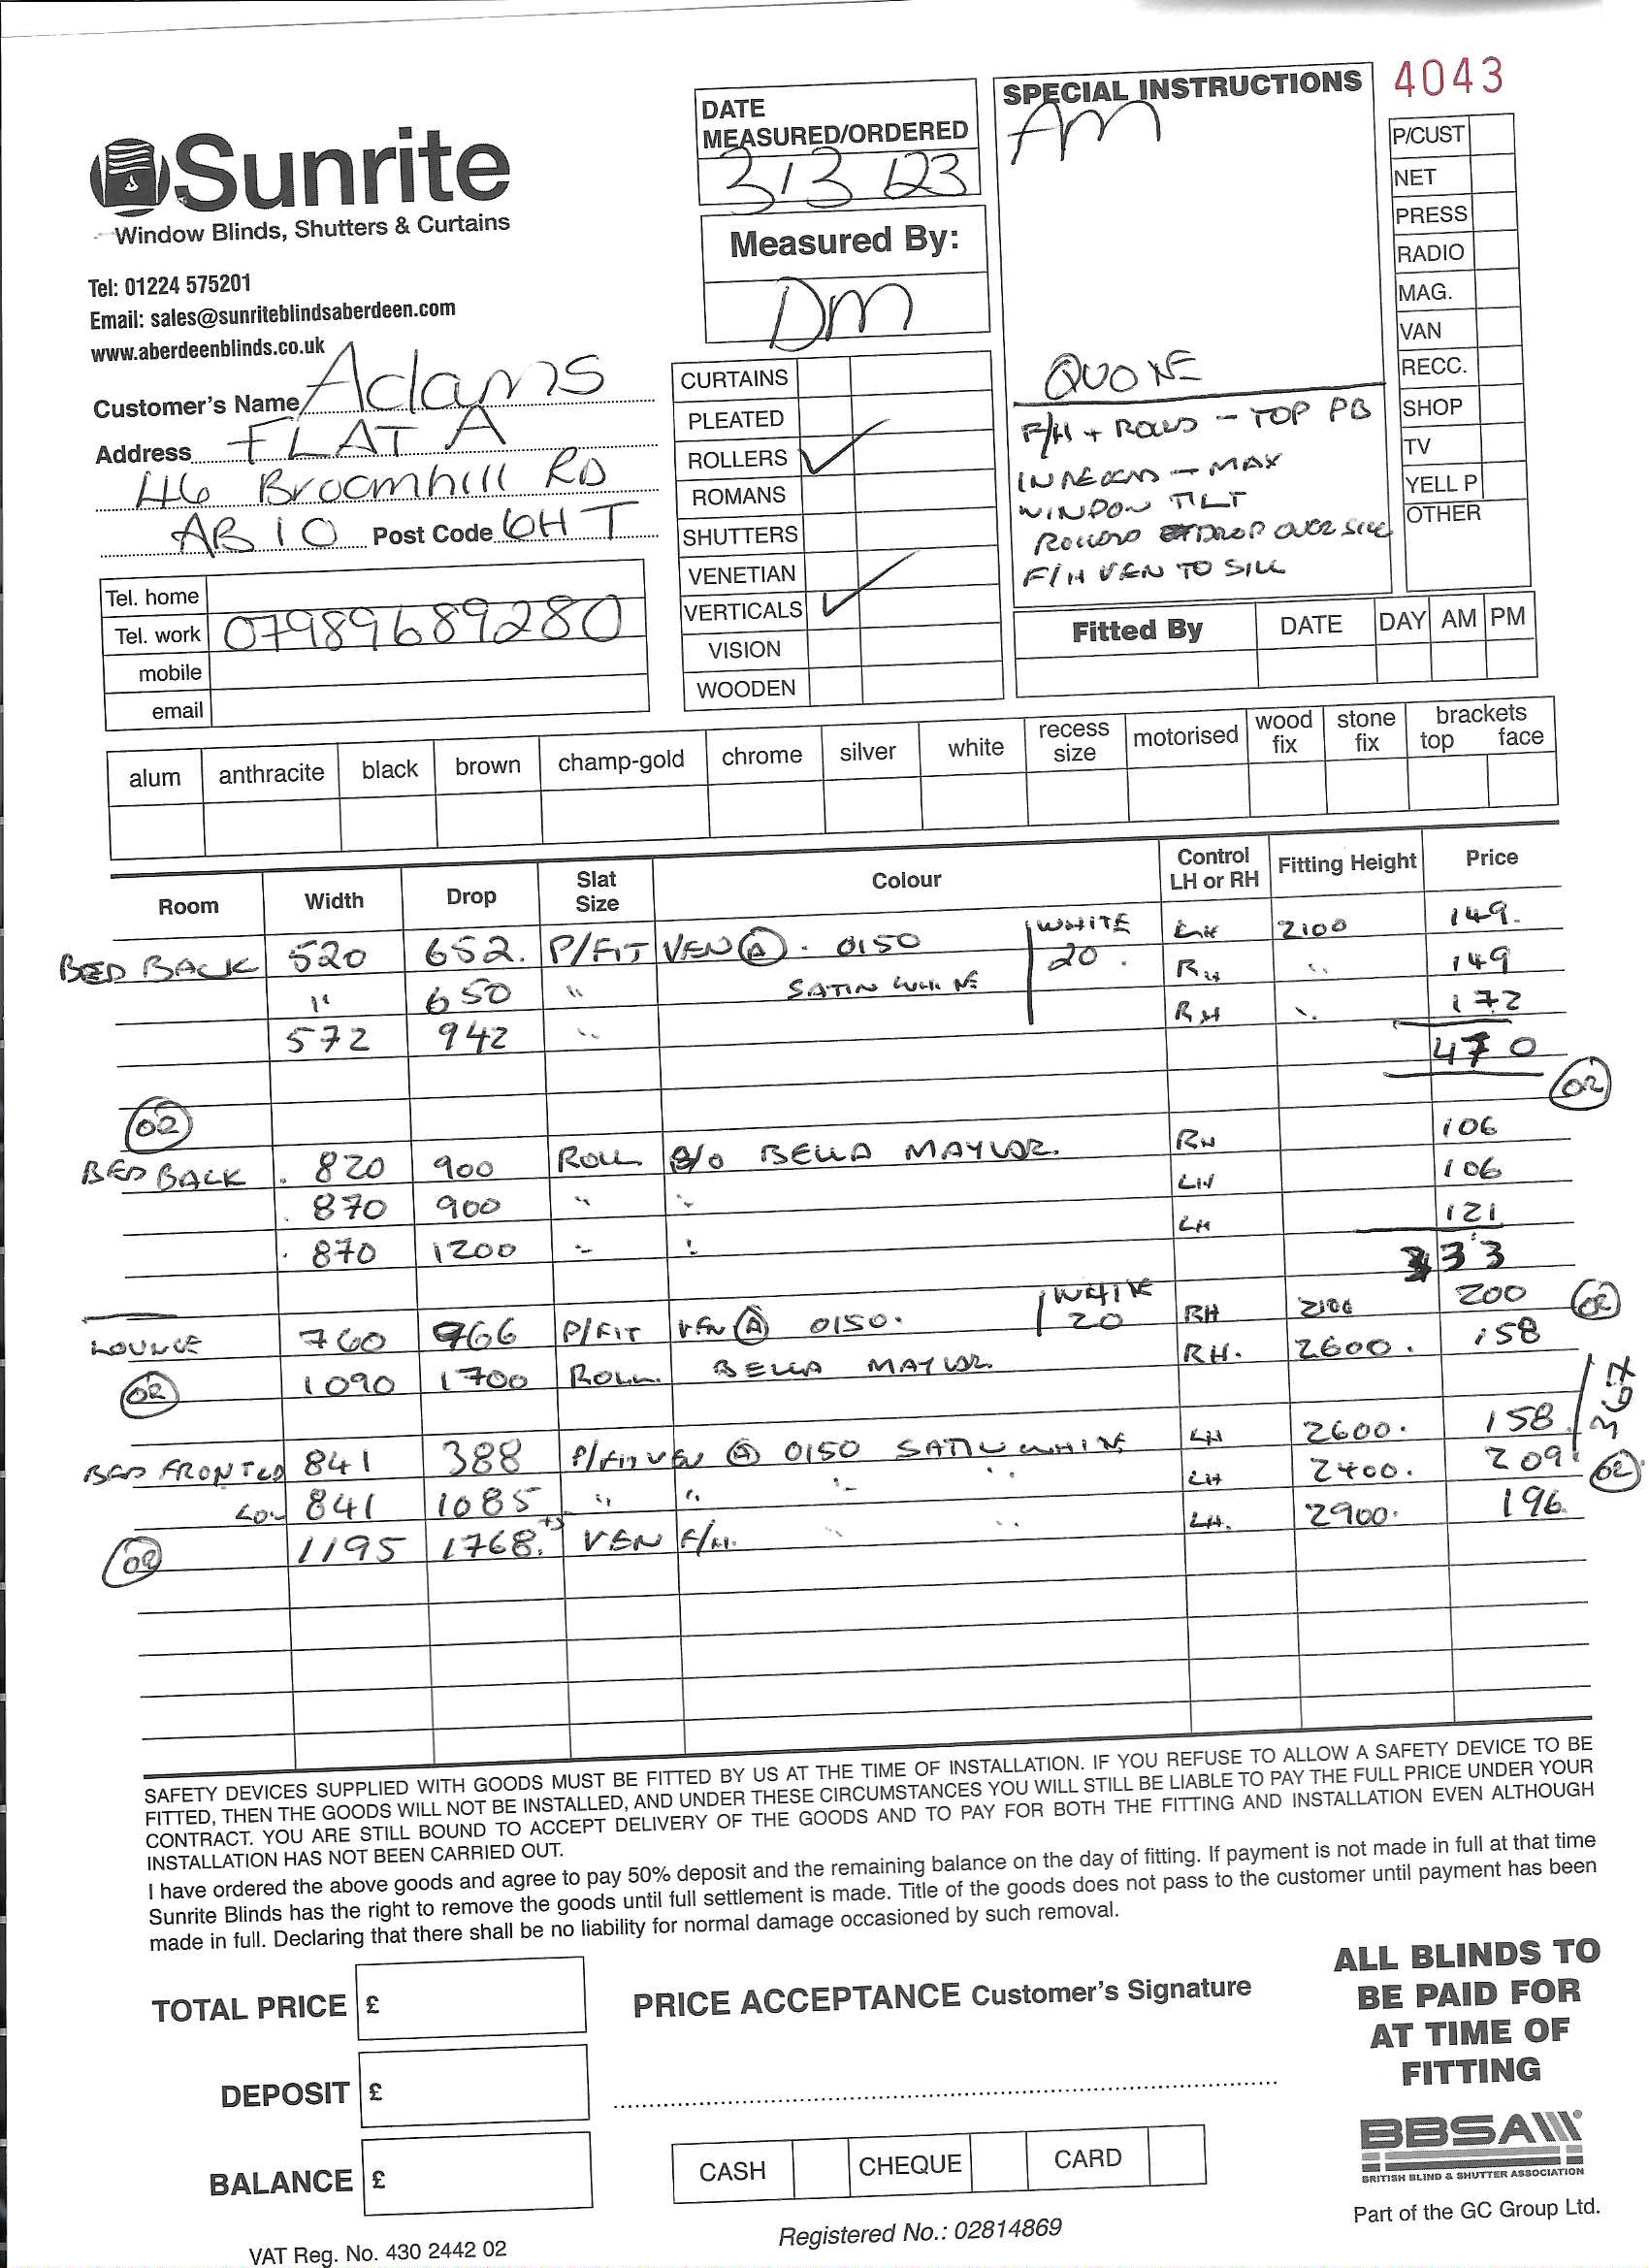 4043
Sunrite
Window Blinds, Shutters & Curtains
Tel: 01224 575201
Email: sales@sunriteblindsaberdeen.com
www.aberdeenblinds.co.uk
Customer's Name Adams
Address FLAT A
46 Broomhill RD
AB10 Post Code 6HT
Tel. home
Tel. work 07989689280
mobile
email
DATE
MEASURED/ORDERED
3/3/23
Measured By:
DM
CURTAINS
PLEATED
ROLLERS ✓
ROMANS
SHUTTERS
VENETIAN
VERTICALS ✓
VISION
WOODEN
SPECIAL INSTRUCTIONS
AM
QUOTE
F/H + ROLLS - TOP PB
IN RECESS - MAX
WINDOW TILT
ROLLERS DROP OVER SILL
F/H VEN TO SILL
P/CUST
NET
PRESS
RADIO
MAG.
VAN
RECC.
SHOP
TV
YELL P
OTHER
Fitted By DATE DAY AM PM
alum anthracite black brown champ-gold chrome silver white recess size motorised wood fix stone fix brackets top face
Room Width Drop Slat Size Colour Control LH or RH Fitting Height Price
BED BACK 520 652. P/FIT VEN (A) . 0150 WHITE LH 2100 149.
" 650 " SATIN WHITE 20. RH " 149
572 942 " RH " 172
470
OR
OR
BED BACK . 820 900 ROLL B/O BELLA MAYLOR. RH 106
. 870 900 " " LH 106
. 870 1200 " " LH 121
333
LOUNGE 760 966 P/FIT VEN (A) 0150. WHITE 20 RH 2100 200 OR
OR 1090 1700 ROLL. BELLA MAYLOR RH. 2600. 158
BED FRONT 841 388 P/FIT VEN (A) 0150 SATIN WHITE LH 2600. 158 367
LOW 841 1085 " " " " LH 2400. 209 OR
OR 1195 1768. VEN F/H. " " LH. 2900. 196
SAFETY DEVICES SUPPLIED WITH GOODS MUST BE FITTED BY US AT THE TIME OF INSTALLATION. IF YOU REFUSE TO ALLOW A SAFETY DEVICE TO BE
FITTED, THEN THE GOODS WILL NOT BE INSTALLED, AND UNDER THESE CIRCUMSTANCES YOU WILL STILL BE LIABLE TO PAY THE FULL PRICE UNDER YOUR
CONTRACT. YOU ARE STILL BOUND TO ACCEPT DELIVERY OF THE GOODS AND TO PAY FOR BOTH THE FITTING AND INSTALLATION EVEN ALTHOUGH
INSTALLATION HAS NOT BEEN CARRIED OUT.
I have ordered the above goods and agree to pay 50% deposit and the remaining balance on the day of fitting. If payment is not made in full at that time
Sunrite Blinds has the right to remove the goods until full settlement is made. Title of the goods does not pass to the customer until payment has been
made in full. Declaring that there shall be no liability for normal damage occasioned by such removal.
TOTAL PRICE £
DEPOSIT £
BALANCE £
PRICE ACCEPTANCE Customer's Signature
CASH CHEQUE CARD
ALL BLINDS TO
BE PAID FOR
AT TIME OF
FITTING
BBSA
BRITISH BLIND & SHUTTER ASSOCIATION
Part of the GC Group Ltd.
Registered No.: 02814869
VAT Reg. No. 430 2442 02